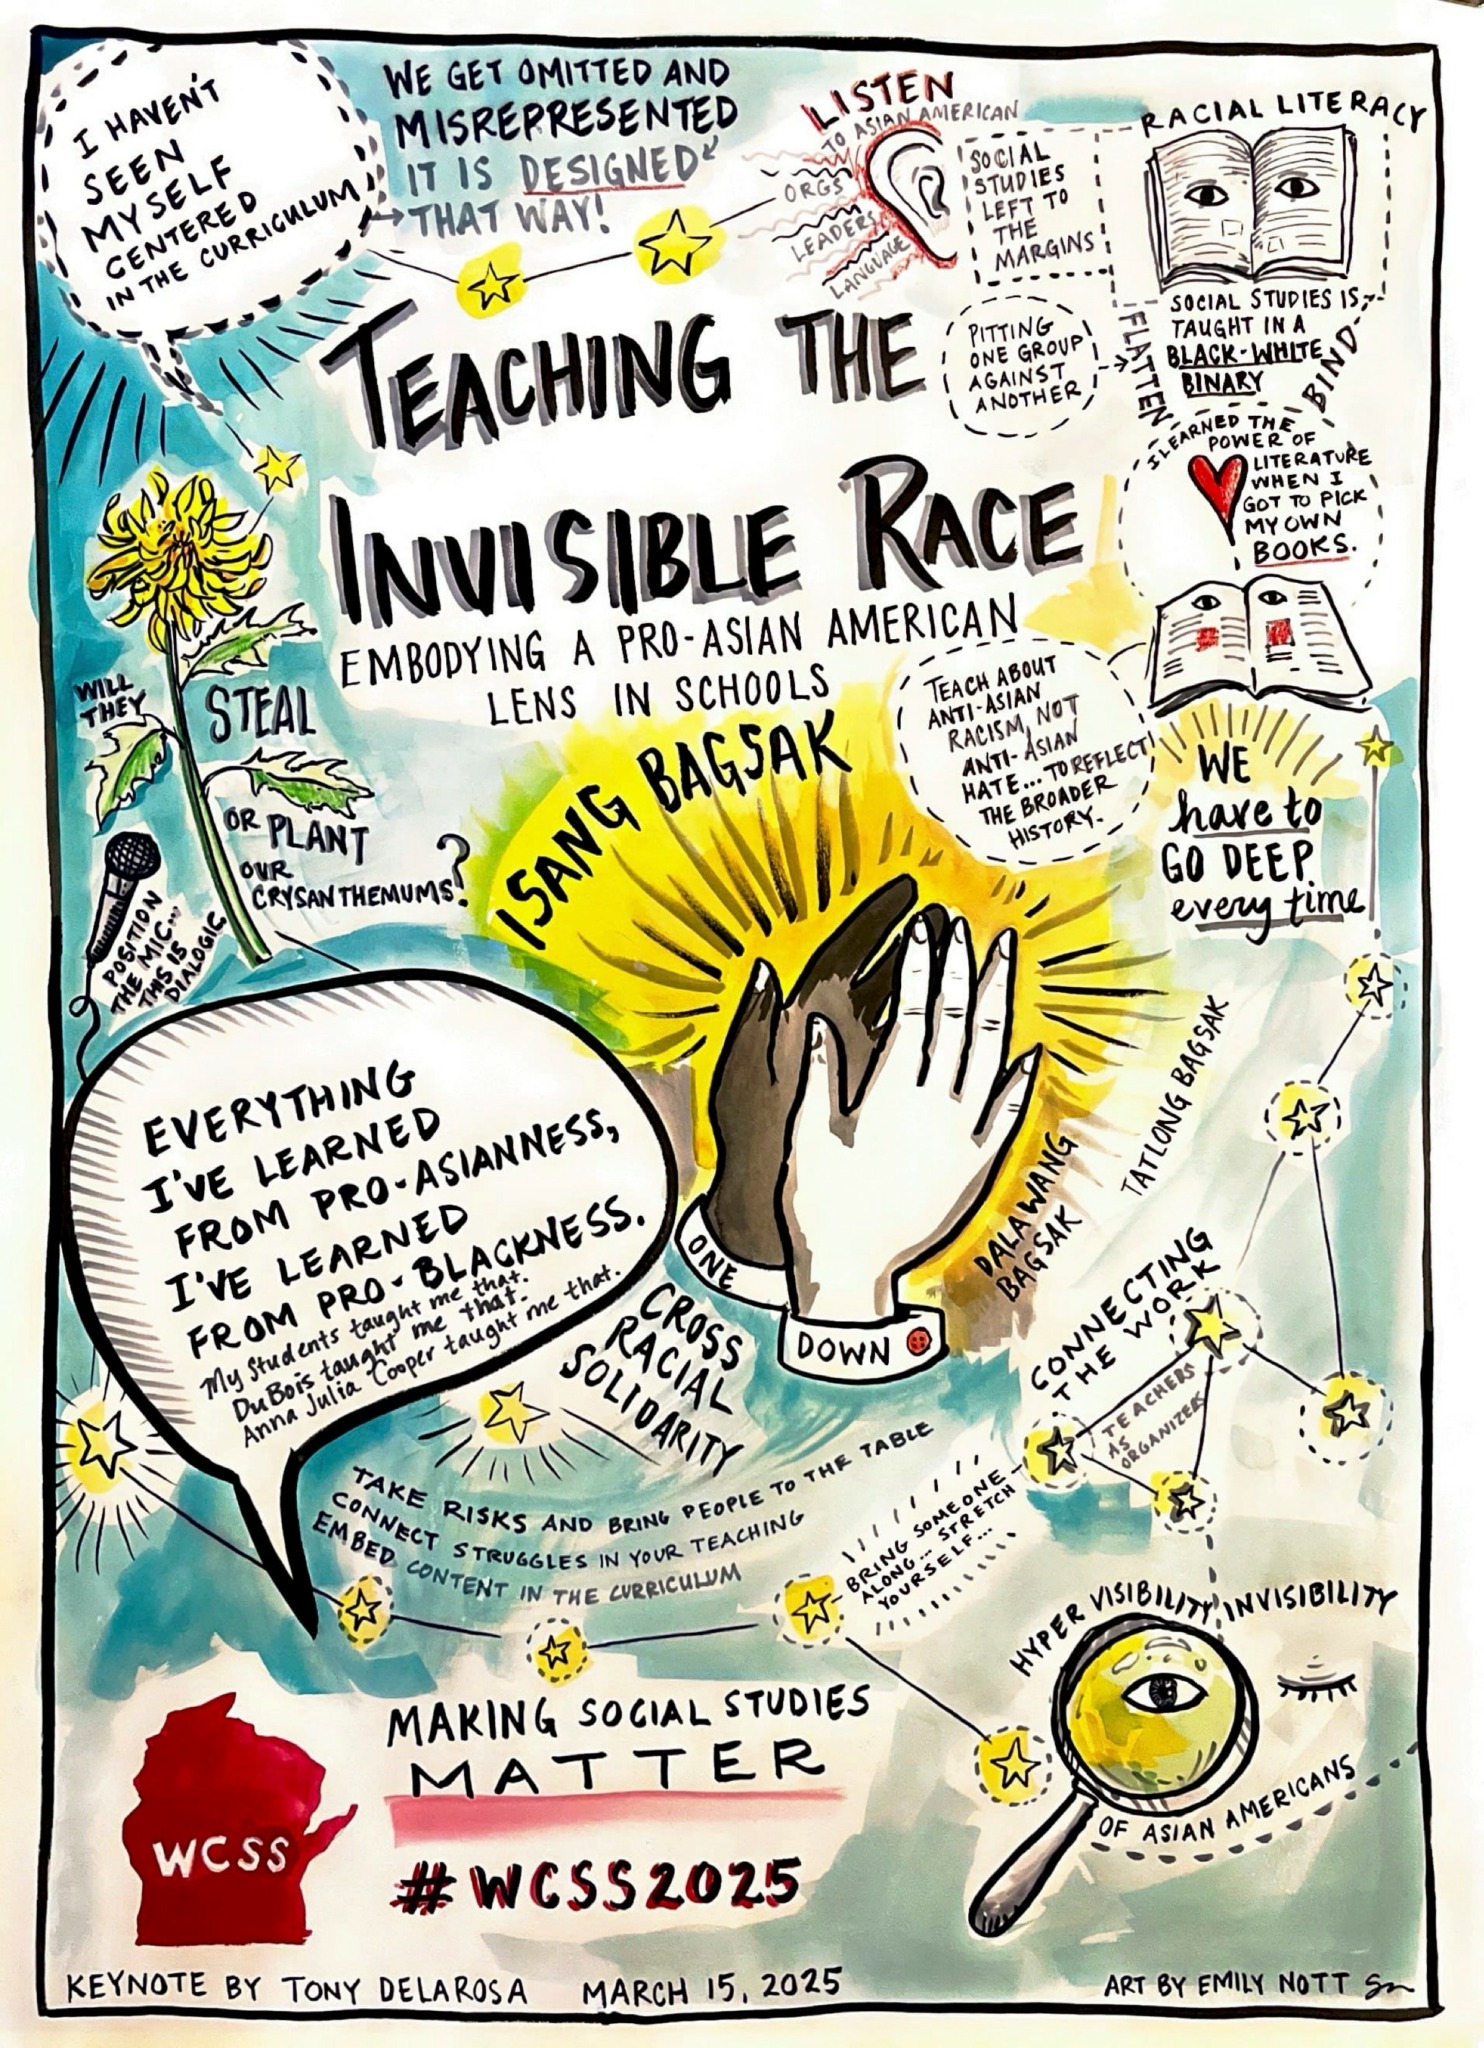 I HAVEN'T
SEEN
MYSELF
CENTERED
IN THE CURRICULUM
WE GET OMITTED AND
MISREPRESENTED
IT IS DESIGNED
THAT WAY!
LISTEN
TO ASIAN AMERICAN
ORGS
LEADERS
LANGUAGE
SOCIAL
STUDIES
LEFT TO
THE
MARGINS
RACIAL LITERACY
SOCIAL STUDIES IS
TAUGHT IN A
BLACK-WHITE
BINARY
FLATTEN
BIND
PITTING
ONE GROUP
AGAINST
ANOTHER
TEACHING THE
INVISIBLE RACE
EMBODYING A PRO-ASIAN AMERICAN
LENS IN SCHOOLS
I LEARNED THE
POWER OF
LITERATURE
WHEN I
GOT TO PICK
MY OWN
BOOKS.
WILL
THEY
STEAL
OR PLANT
OUR
CRYSANTHEMUMS?
POSITION
THE MIC...
THIS IS
DIALOGIC
ISANG BAGSAK
TEACH ABOUT
ANTI-ASIAN
RACISM, NOT
ANTI-ASIAN
HATE... TO REFLECT
THE BROADER
HISTORY.
WE
have to
GO DEEP
every time
EVERYTHING
I'VE LEARNED
FROM PRO-ASIANNESS,
I'VE LEARNED
FROM PRO-BLACKNESS.
My Students taught me that.
DuBois taught me that.
Anna Julia Cooper taught me that.
ONE
DOWN
DALAWANG
BAGSAK
TATLONG BAGSAK
CROSS
RACIAL
SOLIDARITY
CONNECTING
THE WORK
TEACHERS
AS
ORGANIZERS
TAKE RISKS AND BRING PEOPLE TO THE TABLE
CONNECT STRUGGLES IN YOUR TEACHING
EMBED CONTENT IN THE CURRICULUM
BRING SOMEONE
ALONG... STRETCH
YOURSELF...
HYPER VISIBILITY, INVISIBILITY
OF ASIAN AMERICANS
WCSS
MAKING SOCIAL STUDIES
MATTER
#WCSS2025
KEYNOTE BY TONY DELAROSA MARCH 15, 2025
ART BY EMILY NOTT